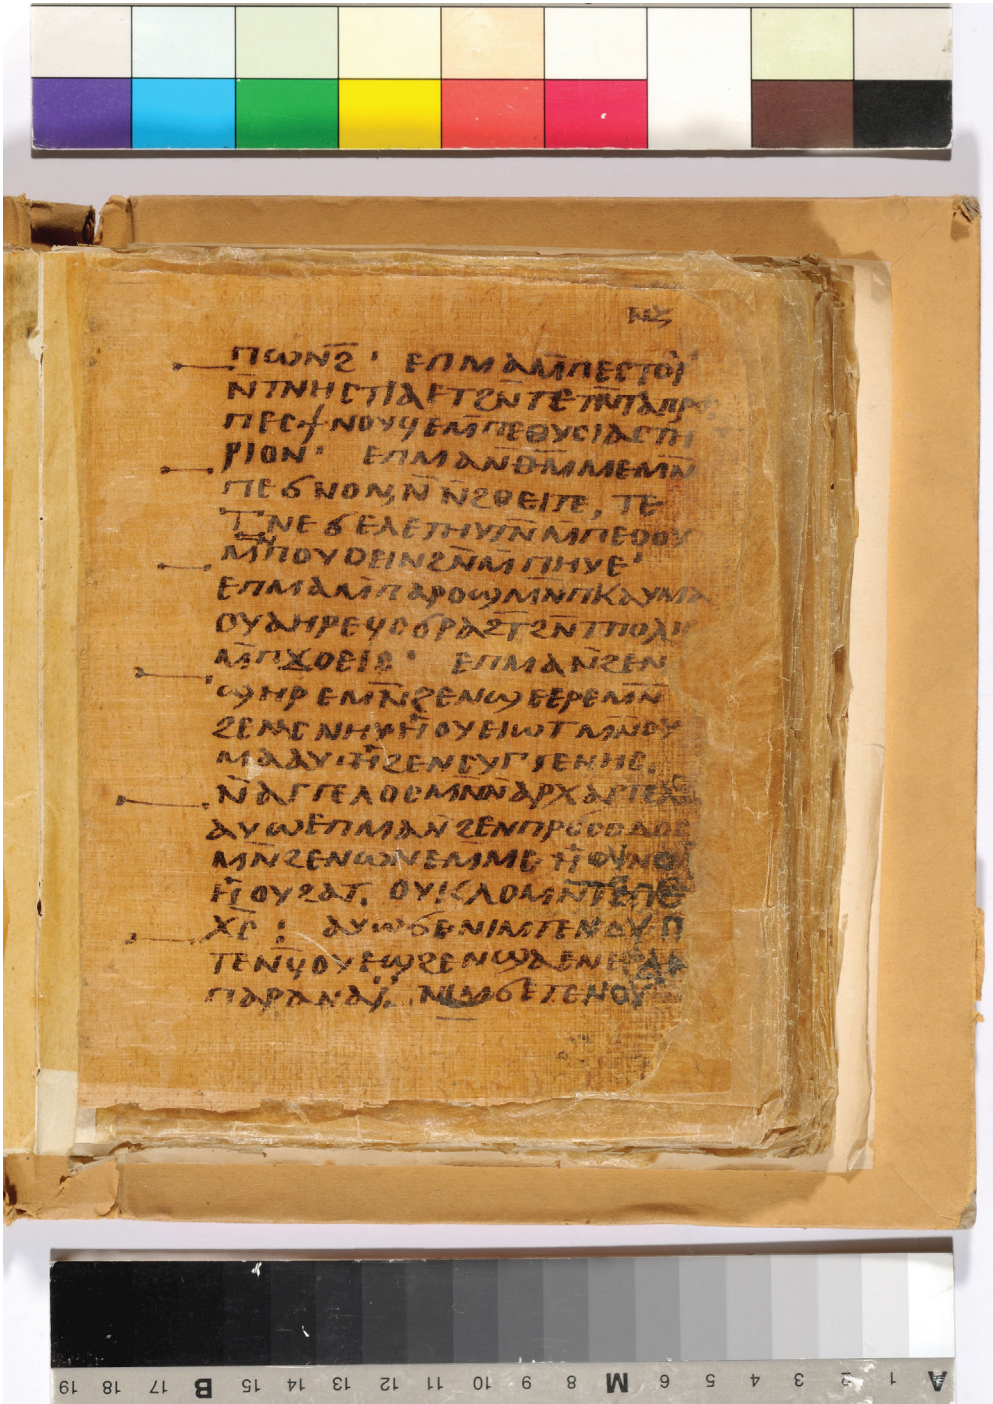 ⲛⲍ
ⲡⲱⲛϩ̅ · ⲉⲡⲙⲁⲙ̅ⲡⲉⲥⲧⲟⲓ̈
ⲛ̅ⲧⲛⲏⲥⲧⲓⲁⲉⲧϩⲛ̅ⲧⲉⲧⲛ̅ⲧⲁⲡⲣⲟ
ⲡⲉⲥϯⲛⲟⲩϥⲉⲙ̅ⲡⲉⲑⲩⲥⲓⲁⲥⲧⲏ
ⲣⲓⲟⲛ · ⲉⲡⲙⲁⲛ̅ⲑⲙ̅ⲙⲉⲙⲛ̅
ⲡⲉϭⲛⲟⲛ, ⲛ̅ⲛ̅ϩⲟⲉⲓⲧⲉ, ⲧⲉ
ⲧⲛⲉϭⲉⲗⲉⲧⲏⲩⲧⲛ̅ⲙ̅ⲡⲉⲟⲟⲩ
ⲙ̅ⲡⲟⲩⲟⲉⲓⲛϩⲛ̅ⲙ̅ⲡⲏⲩⲉ ·
ⲉⲡⲙⲁⲙ̅ⲡⲁⲣⲟϣⲙⲛ̅ⲡⲕⲁⲩⲙⲁ
ⲟⲩⲁⲏⲣⲉϥⲥϭⲣⲁϩⲧ̅ϩⲛ̅ⲧⲡⲟⲗⲓⲥ
ⲙ̅ⲡϫⲟⲉⲓⲥ · ⲉⲡⲙⲁⲛ̅ϩⲉⲛ
ϣⲏⲣⲉⲙⲛ̅ϩⲉⲛϣⲉⲉⲣⲉⲙⲛ̅
ϩⲉⲛⲥⲛⲏⲩⲏ̈ⲟⲩⲉⲓⲱⲧⲙⲛ̅ⲟⲩ
ⲙⲁⲁⲩ · ⲏ̈ϩⲉⲛⲥⲩⲅⲅⲉⲛⲏⲥ,
ⲛ̅ⲁⲅⲅⲉⲗⲟⲥⲙⲛ̅ⲛ̅ⲁⲣⲭⲁⲅⲅⲉⲗⲟⲥ
ⲁⲩⲱⲉⲡⲙⲁⲛ̅ϩⲉⲛⲡⲣⲟⲥⲟⲇⲟⲥ
ⲙⲛ̅ϩⲉⲛⲱⲛⲉⲙⲙⲉ ⲏ̈ⲟⲩⲛⲟⲩⲃ
ⲏ̈ⲟⲩϩⲁⲧ, ⲟⲩⲕⲗⲟⲙⲛ̅ⲧⲉⲡⲉ
ⲭ̅ⲥ̅ : ⲁⲩⲱϭⲉⲛⲓⲙⲡⲉⲛⲁⲩⲡ
ⲧⲉⲛϥⲟⲩⲉϣϩⲉⲛϣⲁⲉⲛⲉϩⲁⲛ
ⲡⲁⲣⲁⲛⲁⲓ̈, ⲛⲓⲙϭⲉⲡⲉⲛⲟⲩ